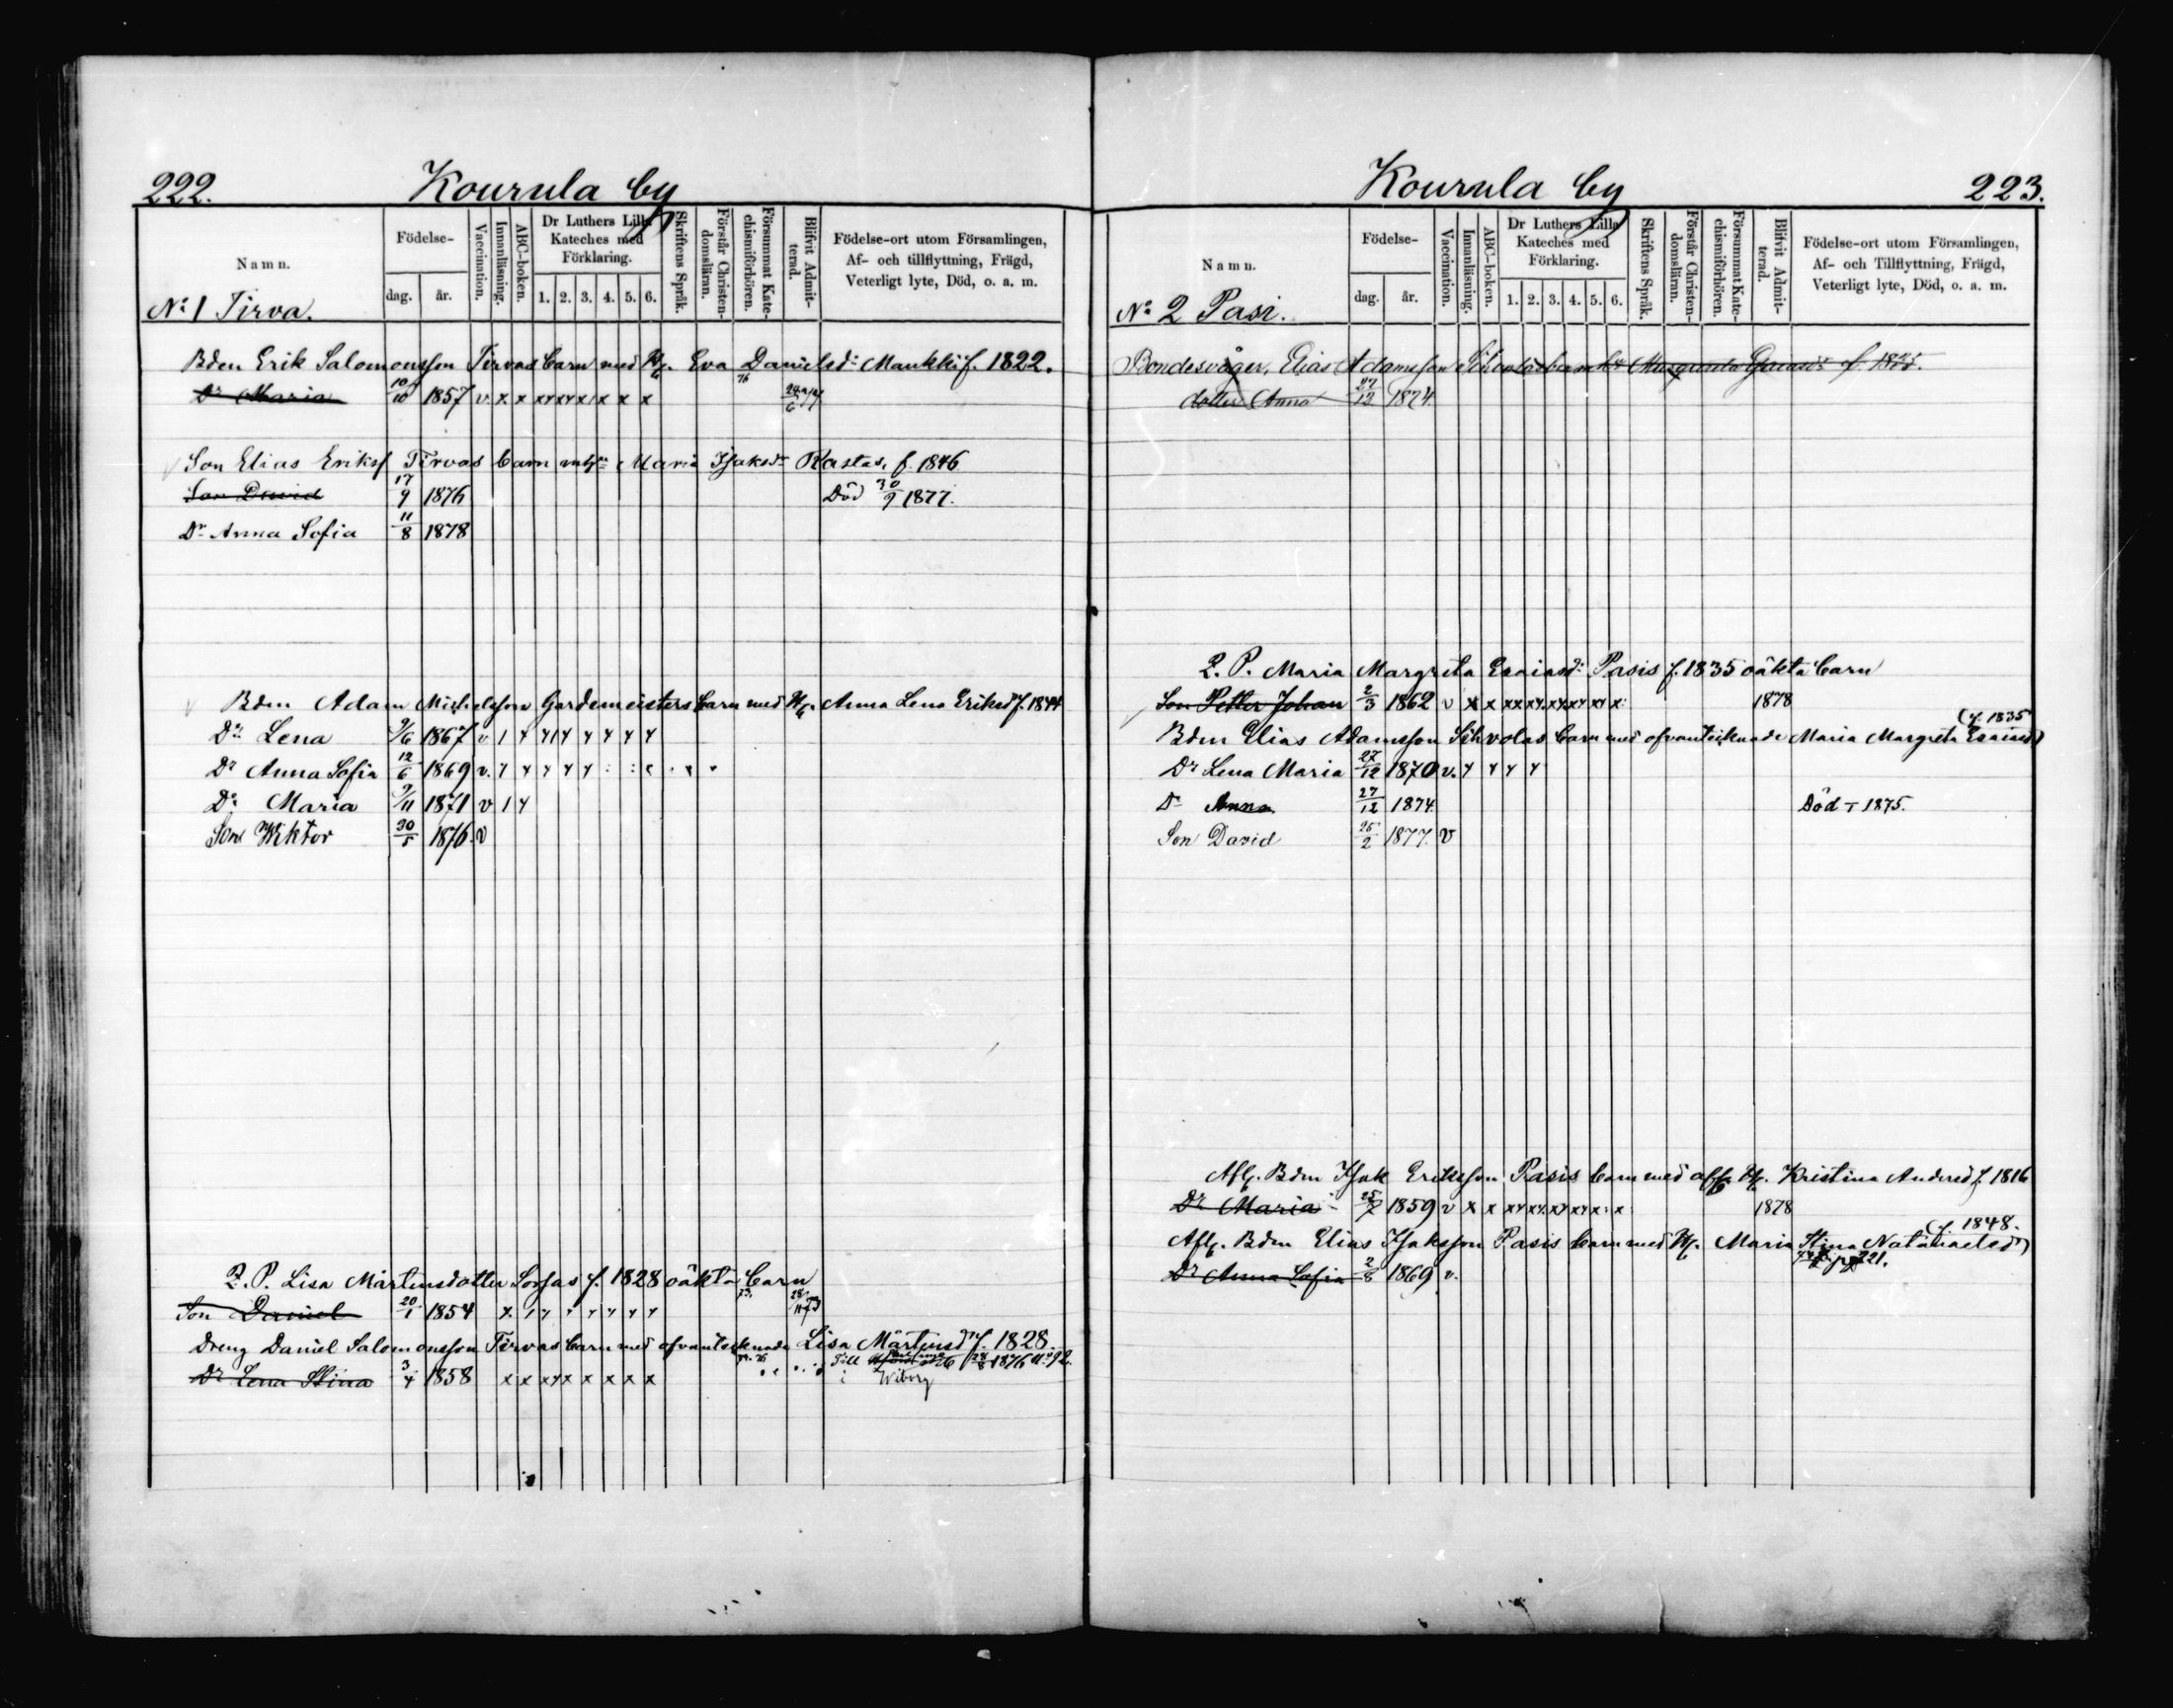 222.
Kourula by
Namn.
Födelse-
dag.
år.
Vaccination.
Innanläsning.
ABC-boken.
Dr Luthers Lilla
Kateches med
Förklaring.
1. 2. 3. 4. 5. 6.
Skriftens Språk.
Förstår Christen-
domsläran.
Försummat Kate-
chismiförhören.
Blifvit Admit-
terad.
Födelse-ort utom Församlingen,
Af- och tillflyttning, Frägd,
Veterligt lyte, Död, o. a. m.
No 1 Tirva.
Bden Erik Salomonsson Tirvas barn med H. Eva Danielsdr Maukki f. 1822.
Dr Maria 10/10 1857 v. x x xx xx x x x x 76
Son Elias Eriksf Tirvas barn m Maria Isaksdr Rastas, f. 1846
Son David 17/9 1876 Död 30/9 1877.
Dr Anna Sofia 11/8 1878
Bdm Adam Michelsson Gardemeisters barn med H. Anna Lena Eriksd f. 1844
Dr Lena 9/6 1867 v
Dr Anna Sofia 12/6 1869 v.
Dr Maria 9/11 1871 v
Son Wiktor 30/5 1876. v
Q. P. Lisa Mårtensdotter Sorsas f. 1828 oäkta barn
Son Daniel 20/1 1854 73.
Dreng Daniel Salomonsson Tirvas barn med ofvanteiknade Lisa Mårtensdr f. 1828.
Dr Lena Stina 3/4 1858 x x xx x x x x x Till 1876 No 92.
i Wiborg
Kourula by
223.
Namn.
Födelse-
dag.
år.
Vaccination.
Innanläsning.
ABC-boken.
Dr Luthers Lilla
Kateches med
Förklaring.
1. 2. 3. 4. 5. 6.
Skriftens Språk.
Förstår Christen-
domsläran.
Försummat Kate-
chismiförhören.
Blifvit Admit-
terad.
Födelse-ort utom Församlingen,
Af- och Tillflyttning, Frägd,
Veterligt lyte, Död, o. a. m.
No 2 Pasi.
Bondesvåger, Elias Adamsson Sihvolas barn
dotter Anna 27/12 1874.
Q. P. Maria Margreta Esaiasdr Pasis f. 1835 oäkta barn
Son Petter Johan 2/3 1862 v x x xx xx xx xx xx x 1878
(f. 1835
Bdm Elias Adamsson Sihvolas barn med ofvanteiknade Maria Margreta Esaiasd)
Dr Lena Maria 27/12 1870 v.
Dr Anna 27/12 1874. Död 1875.
Son David 25/2 1877. v
Afl. Bdm Isak Eriksson Pasis barn med afl. H. Kristina Andersd f. 1816
Dr Maria 25/7 1859 v x x 1878
(f. 1848.
Afl. Bdm Elias Isaksson Pasis barn med H. Maria Stina Natanaelsdr)
p 221.
Dr Anna Sofia 2/8 1869 v.